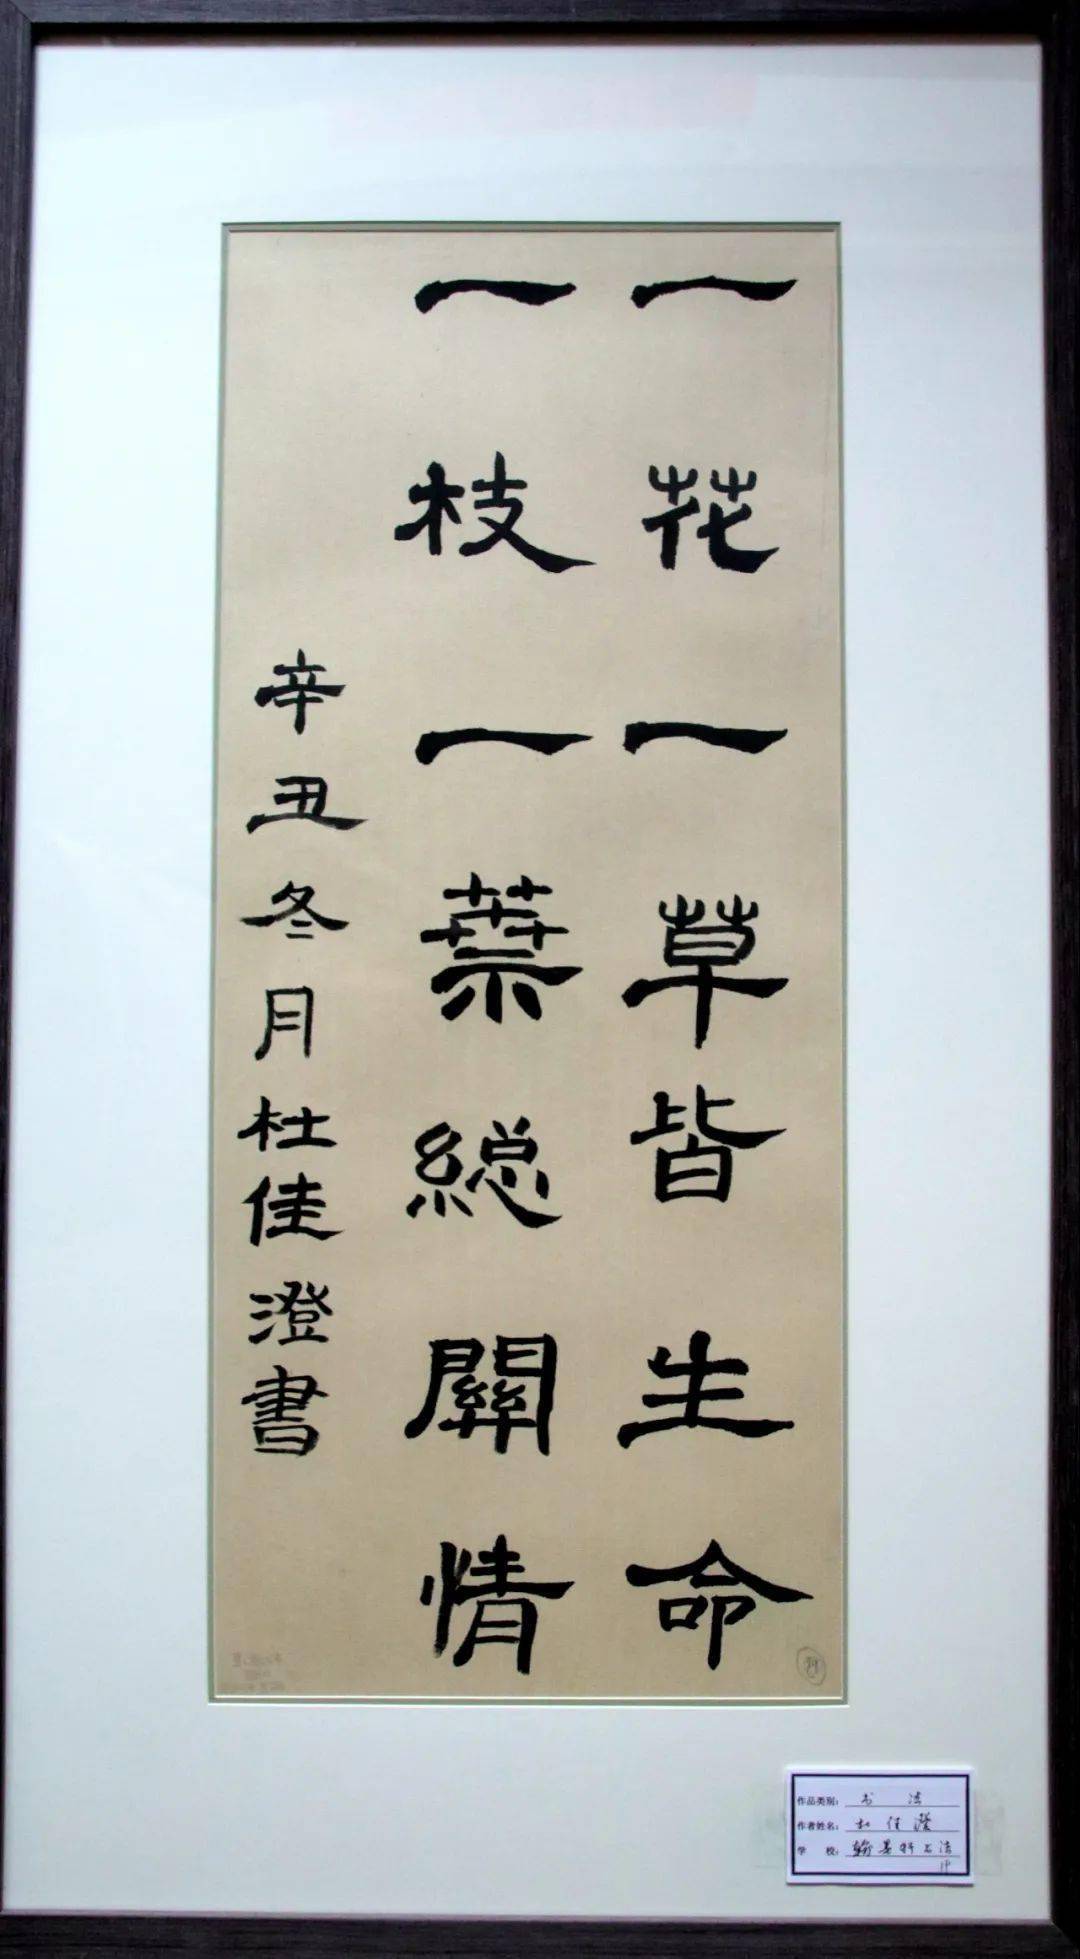 一花一草皆生命
一枝一葉総關情
辛丑冬月杜佳澄書
作品类别： 书法
作者姓名： 杜佳澄
学 校： 翰墨轩书法